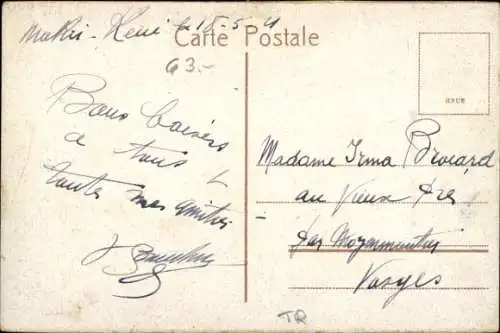 le 15-5-
Carte Postale
63.-
Bons baisers
à tous &
toutes mes amitiés
Madame Irma Brocard
au Vieux Pré
par Moyenmoutier
Vosges
TR